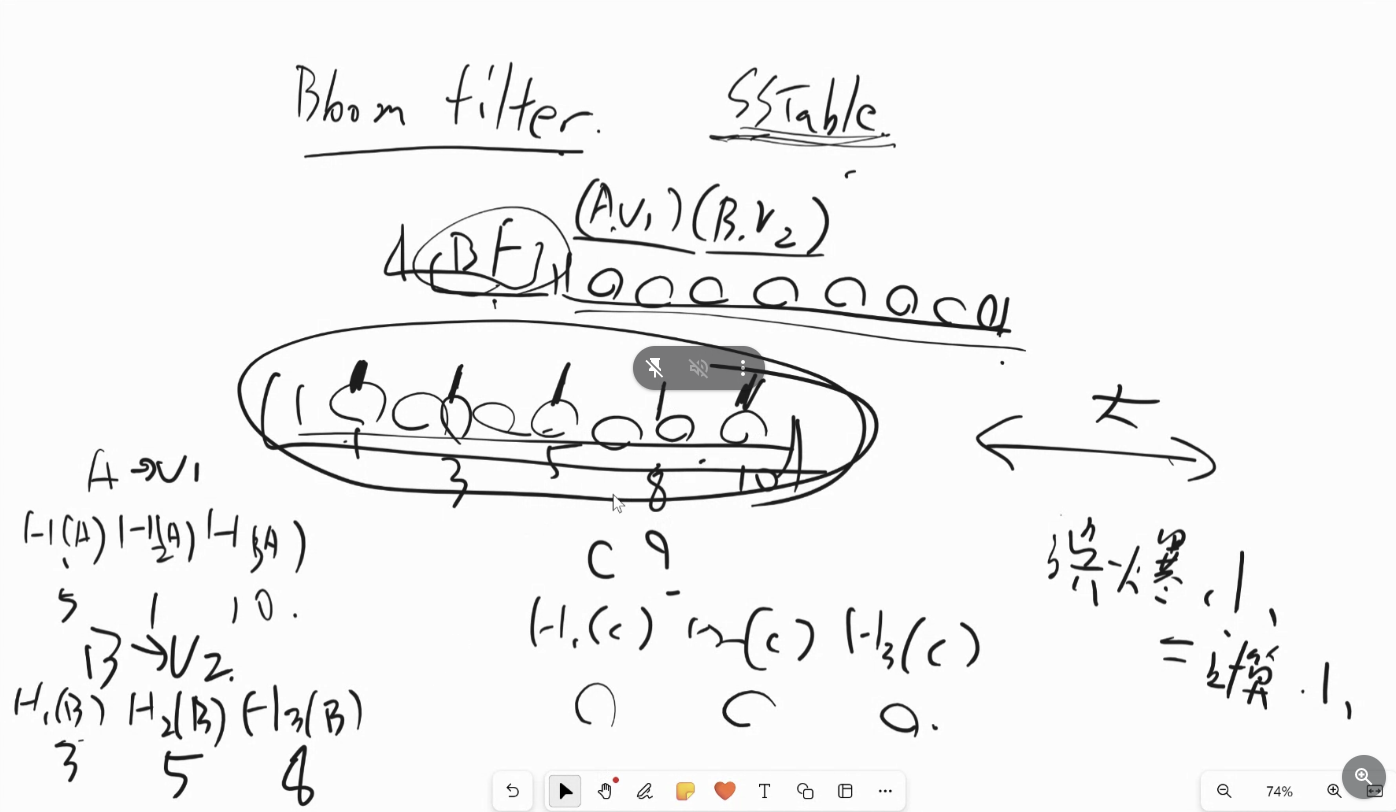 Bloom filter. SSTable
(A.V1) (B.V2)
[BF]
1 3 5 8 10
A → V1
H1(A) H2(A) H3(A)
5 1 10.
B → V2.
H1(B) H2(B) H3(B)
3 5 8
C
H1(C) H2(C) H3(C)
大
74%